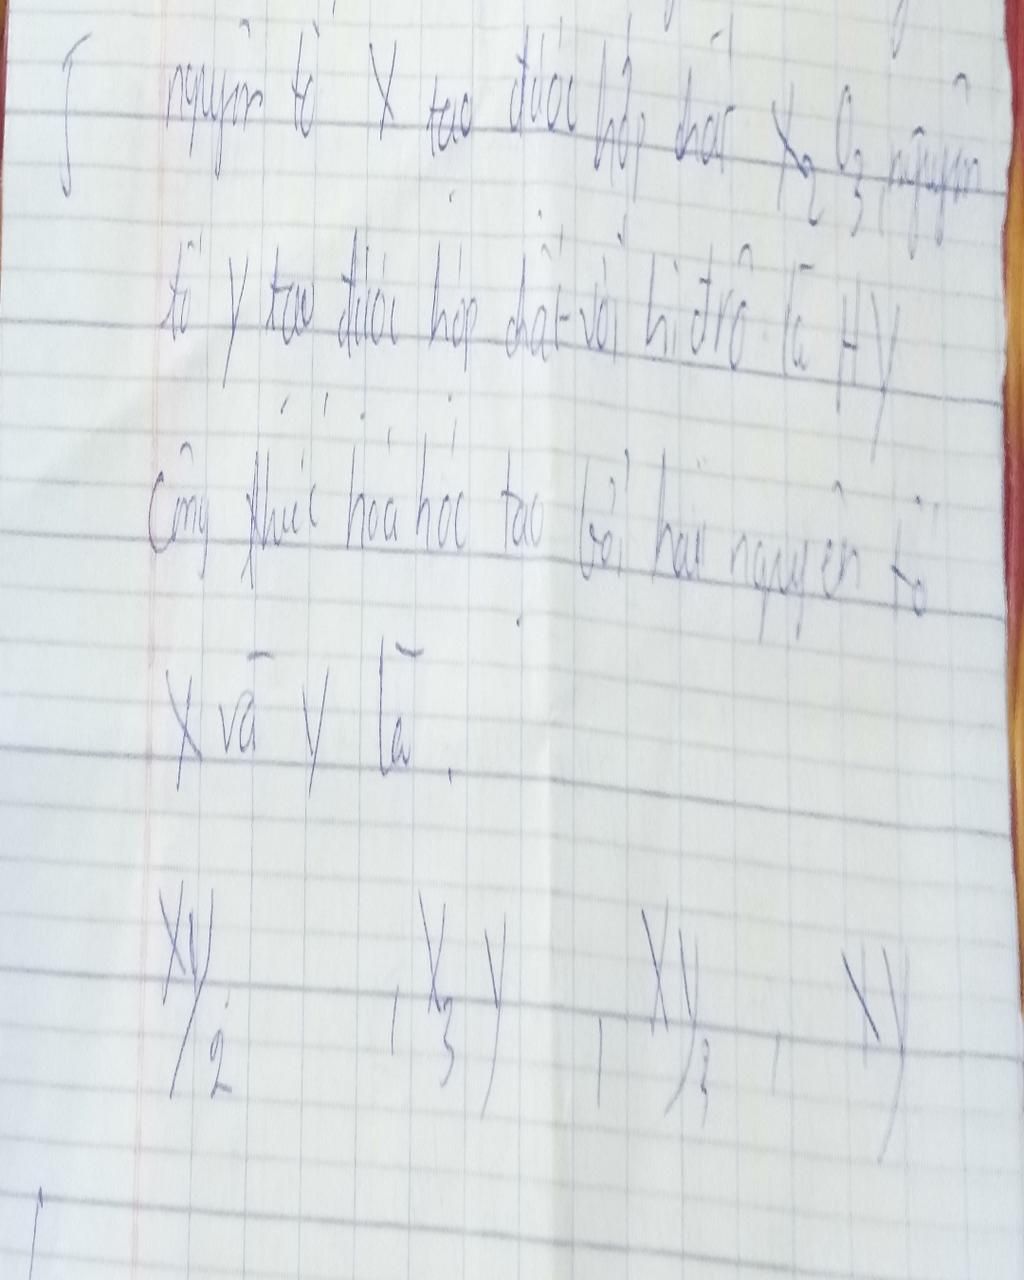 nguyên tố X tạo được hợp chất X₂O₃, nguyên
tố Y tạo được hợp chất với hiđrô là HY
Công thức hoá học tạo bởi hai nguyên tố
X và Y là.
XY₂, X₃Y, XY₃, XY